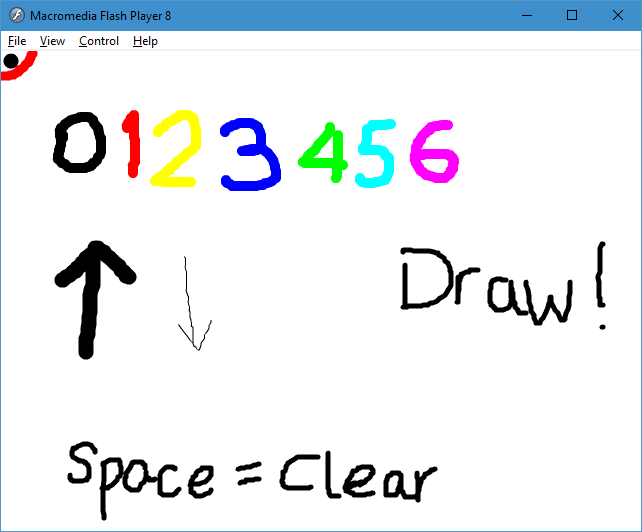 Macromedia Flash Player 8
File View Control Help
0 1 2 3 4 5 6
Draw!
Space = Clear